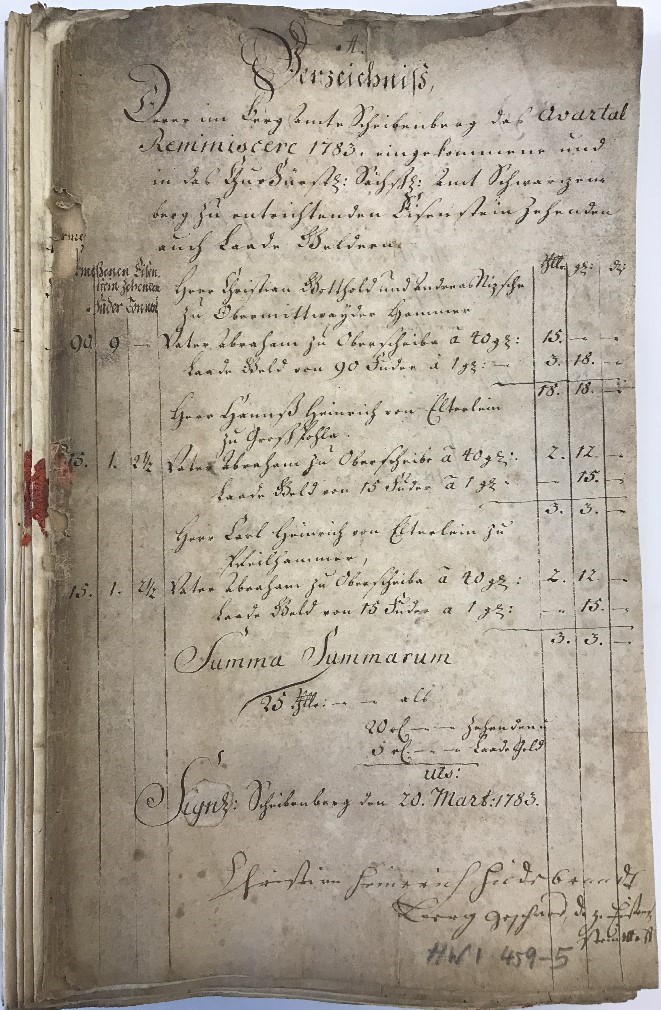 A.
Verzeichniß,
Derer im Berg Amte Scheibenberg das Qvartal
Reminiscere 1783. eingekommene und
in das Churfürstl: Sächß: Amt Schwarzen-
berg zu entrichtenden Eisenstein Zehenden
auch Laade Geldern.
Eisen
stein Zehenden
Fuder Tonnen
thlr: gr: d:
Herr Christian Gotthold und Andreas Nizsche
zu Obermittweyder Hammer
90. 9 — Vater Abraham zu Oberscheiba â 40 gr: 15. — —
Laade Geld von 90 Fuder â 1 gr: — 3. 18. —
18. 18. —
Herr Hannß Heinrich von Elterlein
zu Groß Pohla.
15. 1. 2½ Vater Abraham zu Oberscheibe â 40 gr: 2. 12. —
Laade Geld von 15 Fuder â 1 gr: — 15. —
3. 3. —
Herr Carl Heinrich von Elterlein zu
Pfeilhammer,
15. 1. 2½ Vater Abraham zu Oberscheiba â 40 gr: 2. 12. —
Laade Geld von 15 Fuder a 1 gr: — 15. —
3. 3. —
Summa Summarum
25 thlr: — — als
20 rl. — — Zehenden
5 rl. — — Laade Geld
uts:
Signl: Scheibenberg den 20. Mart: 1783.
Christian Heinrich Hildebrandt
Berg Geschw.
HW 1 459-5